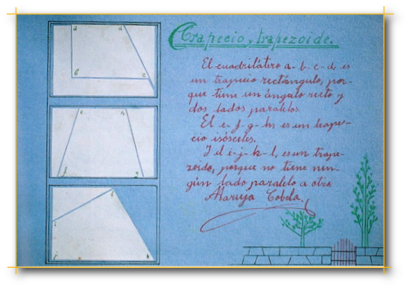 Trapecio, trapezoide.
El cuadrilátero a-b-c-d es
un trapecio rectángulo, por-
que tiene un ángulo recto y
dos lados paralelos.
El e-f-g-h, es un trape-
cio isósceles.
Y el i-j-k-l, es un trape-
zoide, porque no tiene nin-
gún lado paralelo a otro
Maruja